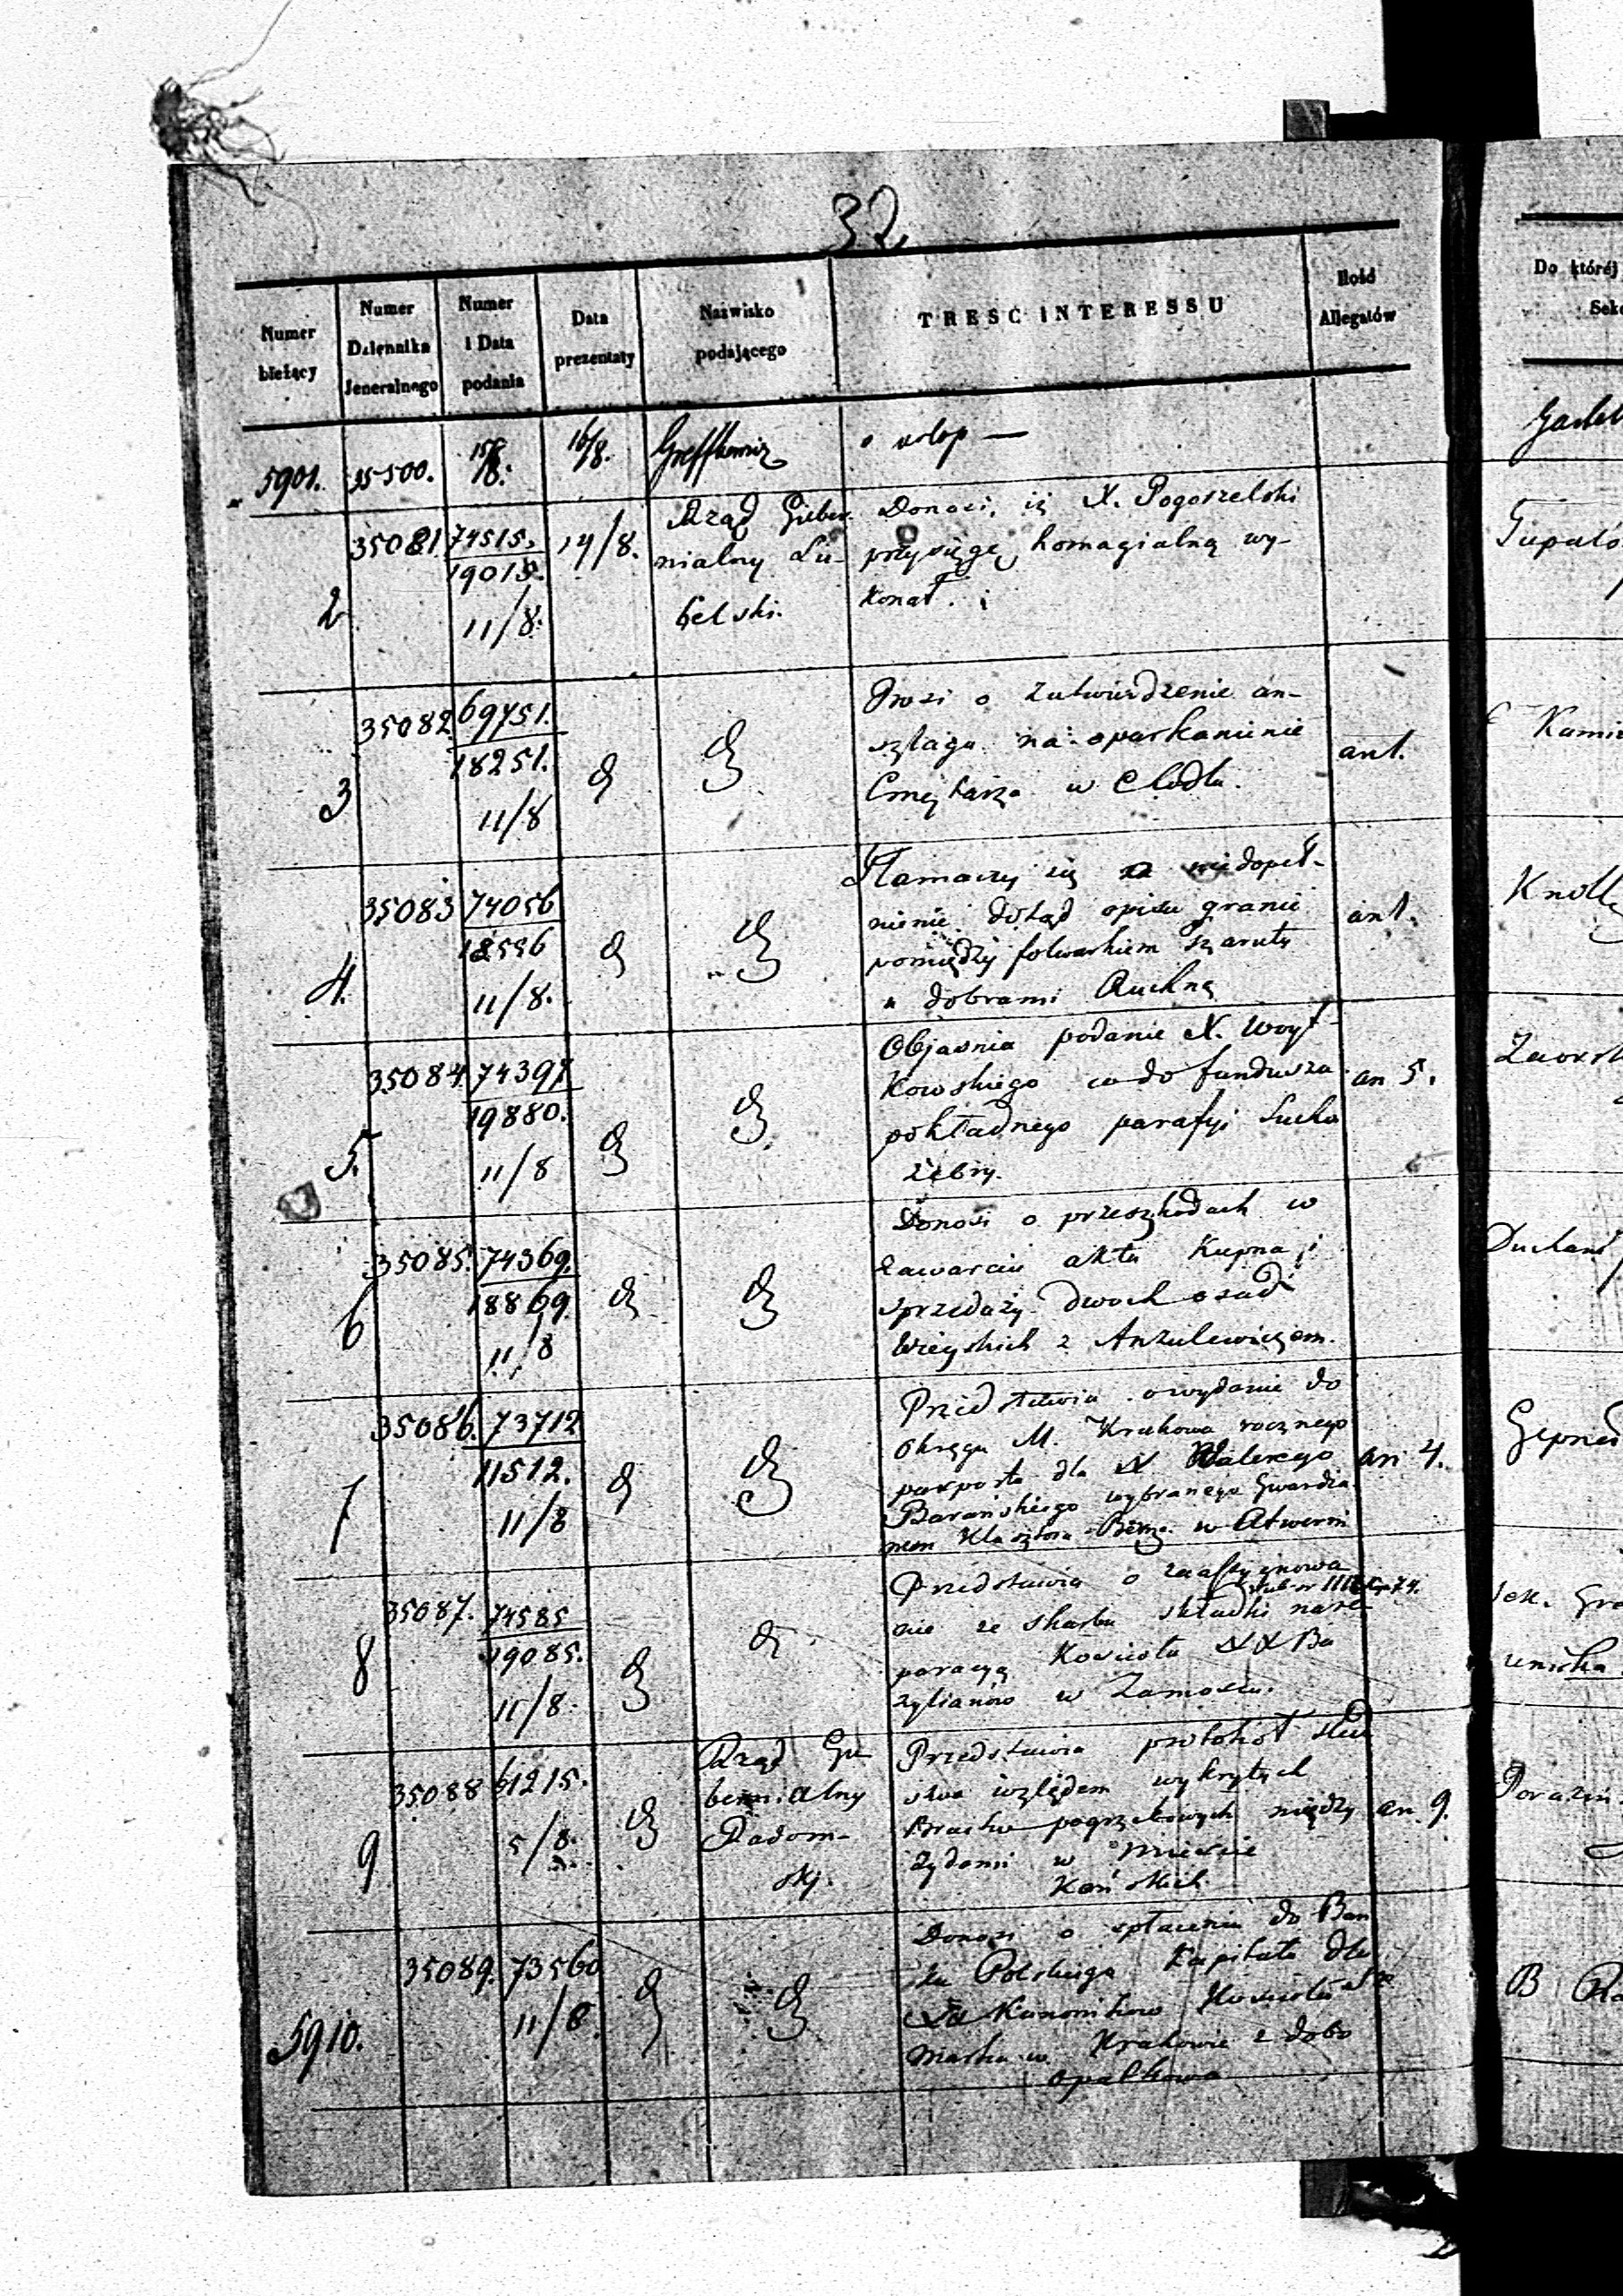 32
Numer bieżący
Numer Dziennika Jeneralnego
Numer i Data podania
Data prezentaty
Nazwisko podającego
TREŚĆ INTERESSU
Ilość Allegatów
Do któréj
5901. 35500. 15/8. 16/8. o urlop —
2 35081. 74515. 19018. 11/8. 14/8.
Rząd Guber-
nialny Lu-
belski.
Donosi, iż X. Pogorzelski
przysięgę homagialną wy-
konał.
3 35082. 69751. 18251. 11/8
Prosi o zatwierdzenie an-
szlagu na oparkanienie
Cmętarza w Clodla.
an 1.
4. 35083 74056 18596 11/8.
Tłamaczy się za niedopeł-
nienie dotąd opisu granic
pomiędzy folwarkiem Szaruty
a dobrami Ruchną
an 1.
5. 35084. 74397 19880. 11/8
Objaśnia podanie X. Woyt-
kowskiego co do funduszu
pokładnego parafyi Sucho
żebry.
an 5.
6 35085. 74369. 18869. 11/8
Donosi o przeszkodach w
zawarciu aktu kupna i
sprzedaży dwoch osad
wieyskich z Anzulewiczem.
7 35086. 73712 11512. 11/8
Przedstawia o wydanie do
Okręgu M. Krakowa rocznego
paszportu dla X Walerego
Barańskiego wybranego Gwardia
nem Klasztoru Bern. w Alwerni
an 4.
8 35087. 74585 19085. 11/8.
Przedstawia o
nie ze skarbu składki na re
paracyą Kościoła XX Ba
zylianów w Zamościu.
9 35088 61215. 5/8.
Rząd Gu
bernialny
Radom-
ski.
Przedstawia protokół śled
stwa względem wykrytych
Bractw pogrzebowych między
żydami w Mieście
Końskich
an 9.
5910. 35089. 73560 11/8.
Donosi o spłaceniu do Ban
ku Polskiego Kapitału dla
XX Kanoników Kościoła
Marka w Krakowie z dobr
Opatkowa
B